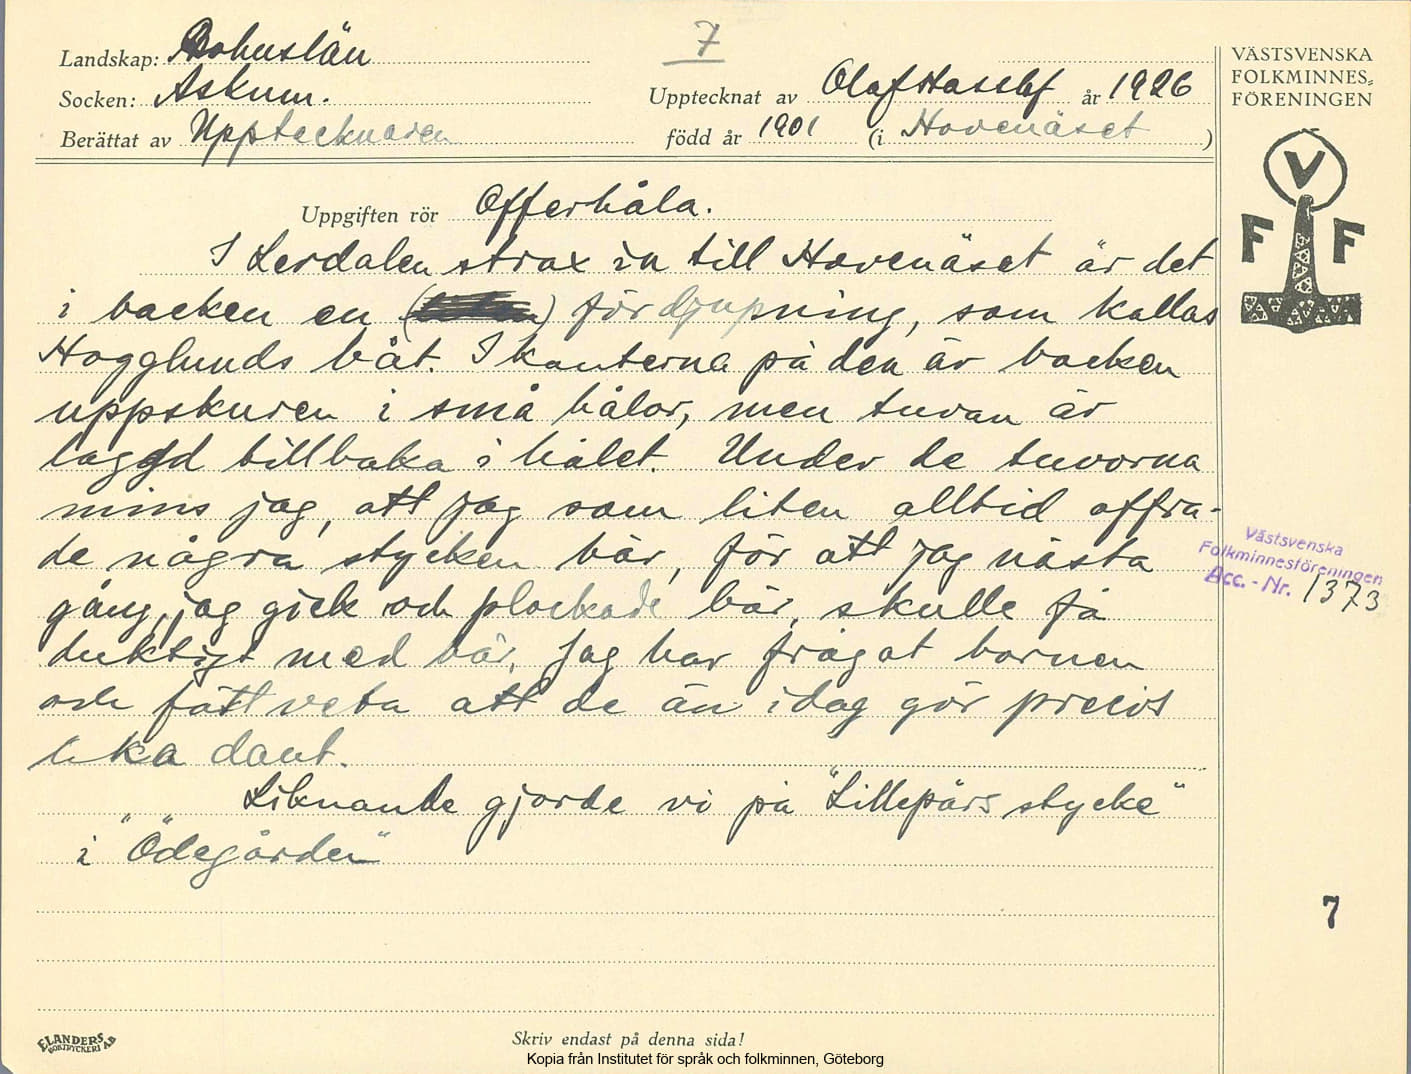 7
Landskap: Bohuslän
Socken: Askum.
Berättat av Upptecknaren
Upptecknat av Olaf Hasslöf år 1926
född år 1901 (i Hovenäset)
VÄSTSVENSKA
FOLKMINNES=
FÖRENINGEN
V
F F
Uppgiften rör Offerhåla.
I Lerdalen strax in till Hovenäset är det
i backen en () fördjupning, som kallas
Hogglunds båt. I kanterna på den är backen
uppskuren i små hålor, men tuvan är
laggd tillbaka i hålet. Under de tuvorna
mins jag, att jag som liten alltid offra-
de några stycken bär, för att jag nästa
gång, jag gick och plockade bär, skulle få
duktigt med bär. Jag har frågat barnen
och fått veta att de än idag gör precis
lika dant.
Liknande gjorde vi på "Lillepärs stycke"
i "Ödegården"
Västsvenska
Folkminnesföreningen
Acc. - Nr. 1373
7
ELANDERS
BOKTRYCKERI AB
Skriv endast på denna sida!
Kopia från Institutet för språk och folkminnen, Göteborg